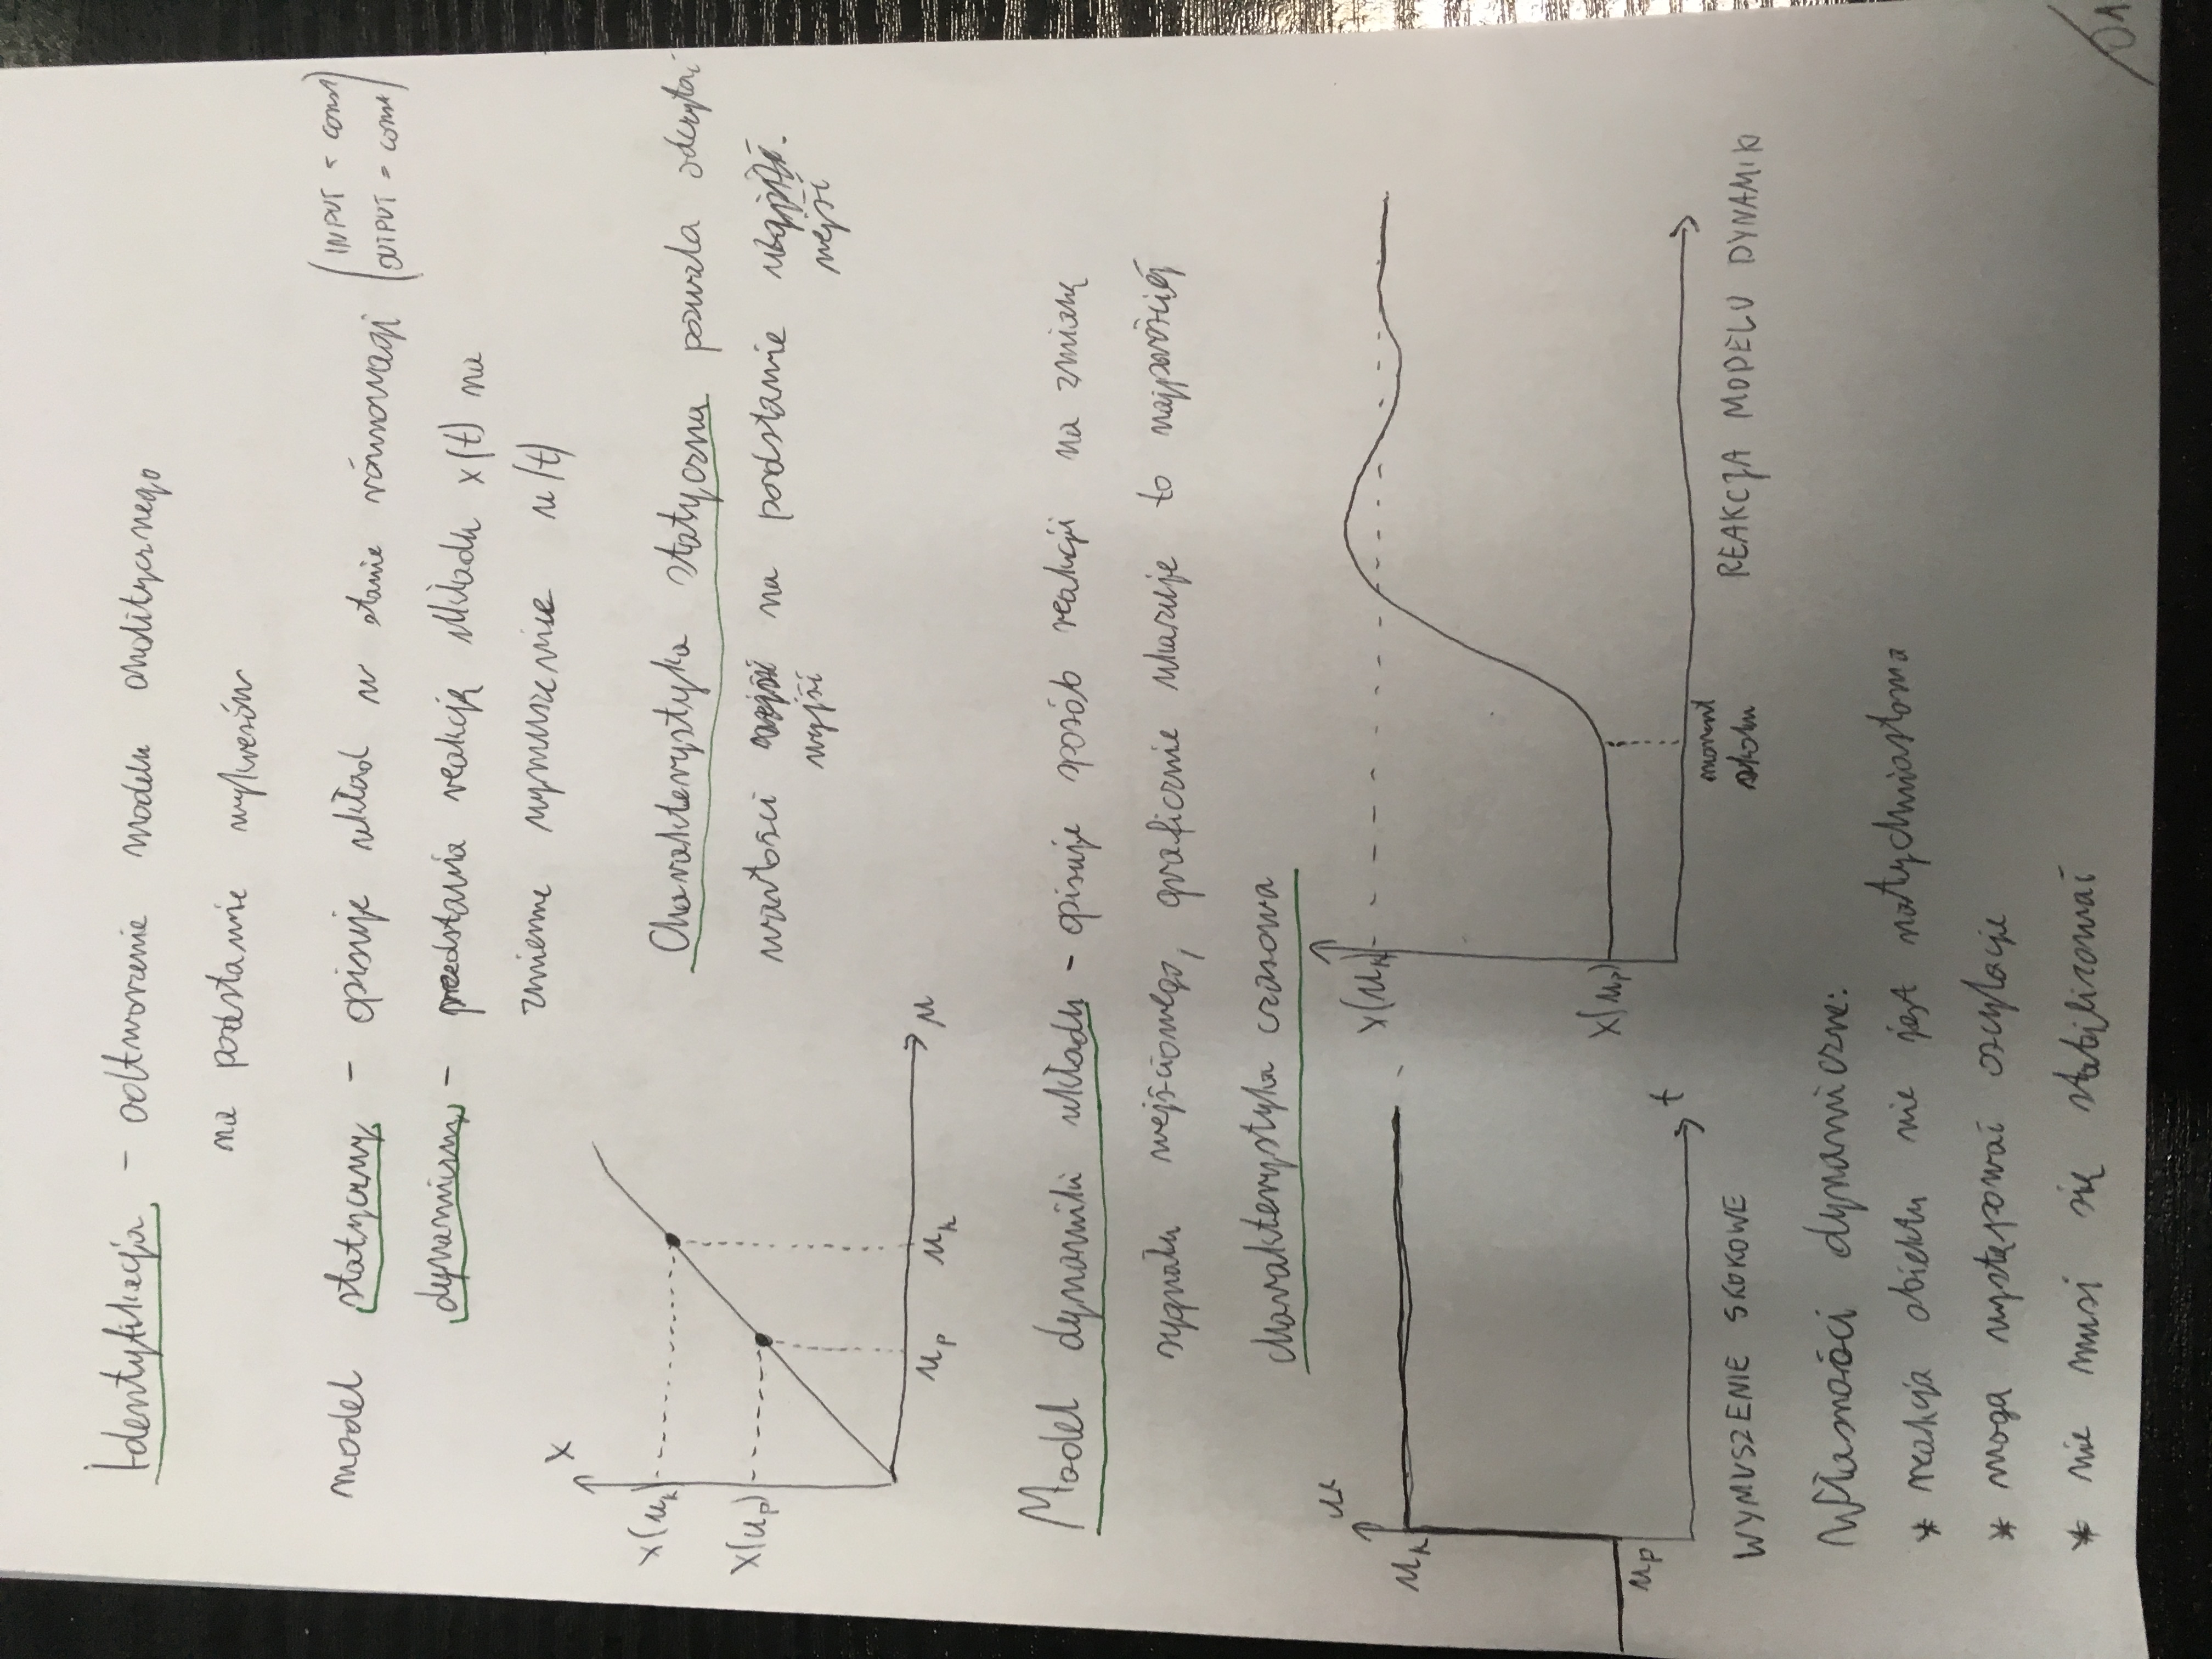 Identyfikacja - odtworzenie modelu analitycznego
na podstawie wykresów
model statyczny - opisuje układ w stanie równowagi (INPUT = const
OUTPUT = const)
dynamiczny - przedstawia reakcję układu x(t) na
zmienne wymuszenie u(t)
x
x(uk)
x(up)
up uk u
Charakterystyka statyczna pozwala odczytać
wartości na podstawie
wyjść wejść
Model dynamiki układu - opisuje sposób reakcji na zmianę
sygnału wejściowego, graficznie ukazuje to najprościej
charakterystyka czasowa
u
uk
up
t
WYMUSZENIE SKOKOWE
x(uk)
x(up)
moment
skoku
REAKCJA MODELU DYNAMIKI
Własności dynamiczne:
* reakcja obiektu nie jest natychmiastowa
* moga występować oscylacje
* nie musi się stabilizować
/01